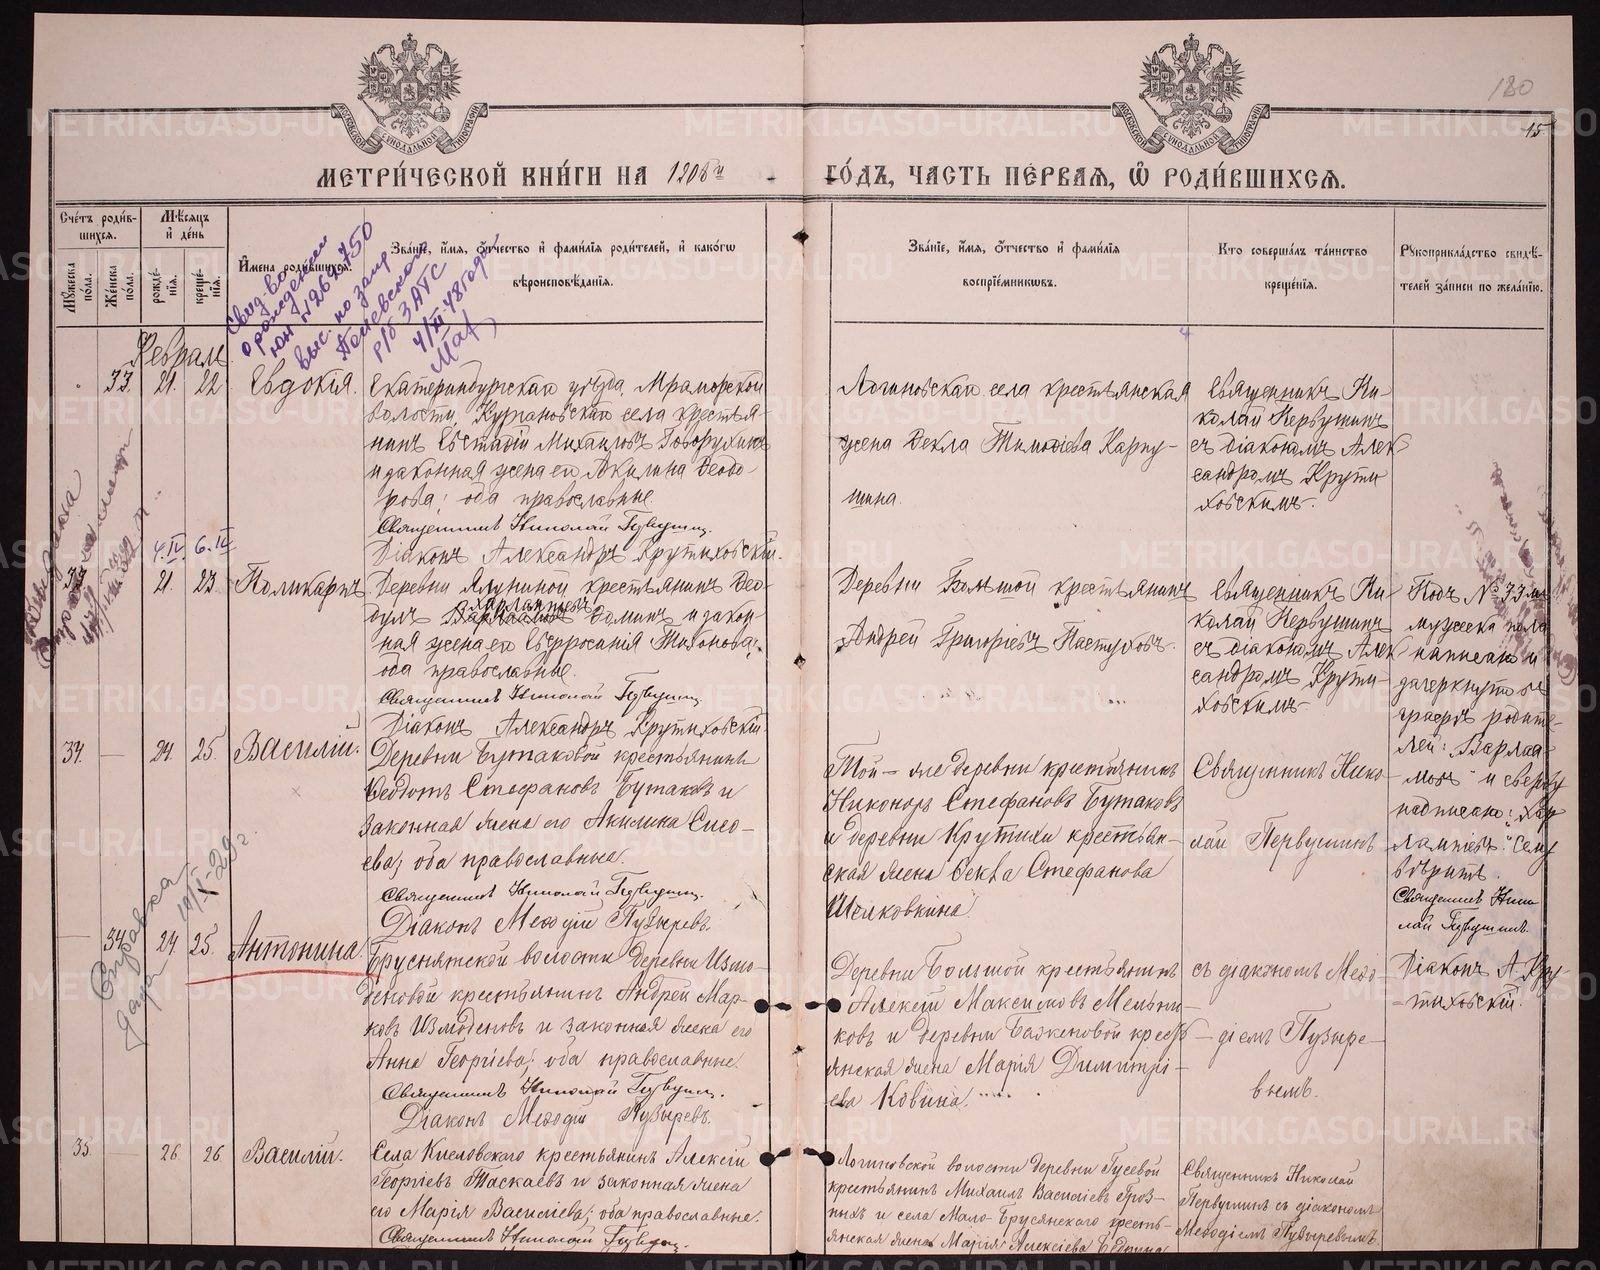 180
15
МОСКОВСКОЙ СУНОДАЛЬНОЙ ТИПОГРАФІИ
МОСКОВСКОЙ СУНОДАЛЬНОЙ ТИПОГРАФІИ
МЕТРИ́ЧЕСКОЙ КНИ́ГИ НА 1906й ГО́ДЪ, ЧАСТЬ ПЕ́РВАЯ, Ѡ РОДИ́ВШИХСЯ.
Сче́тъ роди́в-
шихся.
Мѣ́сяцъ
и҆ де́нь
Му́жеска
по́ла.
Же́нска
пола.
рожде́-
нїѧ.
креще́-
нїѧ.
И҆мена роди́вшихсѧ.
Зва́нїе, и҆́мѧ, ѻ҆́тчество и҆ фами́лїѧ роди́телей, и҆ како́гѡ
вѣроисповѣ́данїѧ.
Зва́нїе, и҆́мѧ, ѻ҆́тчество и҆ фами́лїѧ
воспрїе́мникѡвъ.
Кто соверша́лъ та́инство
креще́нїѧ.
Рꙋкоприкла́дство свидѣ́-
телей за́писи по жела́нїю.
Свид-во
о рождении
выс. по запр
р/б ЗАГС
4/III-48 года
Февраль
33. 21. 22
Евдокія.
Екатеринбургскаго уѣзда, Мраморской
волости, Кургановскаго села крестья-
нинъ Евстафій Михаиловъ Говорухинъ
и законная жена его Акилина Ѳеодо-
рова; оба православные.
Священникъ Николай Первушин.
Діаконъ Александръ Крутиховскій.
Логиновскаго села крестьянская
жена Ѳекла Тимоѳіева Карпу-
шина.
Священникъ Ни-
колай Первушинъ
съ діакономъ Алек-
сандромъ Крути-
ховскимъ.
4.IV. 6.IV
21. 23.
Поликарпъ
Деревни Ялуниной крестьянинъ Ѳео-
Харлампіевъ
дулъ Варлаамовъ Ѳоминъ и закон-
ная жена его Евфросинія Тихонова;
оба православные.
Священникъ Николай Первушин.
Діаконъ Александръ Крутиховскій.
Деревни Большой крестьянинъ
Андрей Григоріевъ Пастуховъ.
Священникъ Ни-
колай Первушинъ
съ діакономъ Алек-
сандромъ Крути-
ховскимъ.
Подъ № 33 мъ
мужеска пола
написано и
зачеркнуто въ
графѣ родите-
лей: "Варлаа-
мовъ" и сверху
надписано: "Хар-
лампіевъ". Сему
вѣрить.
Священникъ Нико-
лай Первушинъ.
Діаконъ А. Кру-
тиховскій.
34. — 24. 25.
Василій.
Деревни Бутаковой крестьянинъ
Ѳедотъ Стефановъ Бутаковъ и
законная жена его Акилина Сисо-
ева; оба православные.
Священникъ Николай Первушин.
Діаконъ Меѳодій Пузыревъ.
Той-же деревни крестьянинъ
Никоноръ Стефановъ Бутаковъ
и деревни Крутихи крестьян-
ская жена Ѳекла Стефанова
Шелковкина.
Священникъ Нико-
лай Первушинъ
Справка
дана 19/IX-29 г.
— 34. 24. 25.
Антонина.
Бруснятской волости деревни Измо-
деновой крестьянинъ Андрей Мар-
ковъ Измоденовъ и законная жена его
Анна Георгіева; оба православные.
Священникъ Николай Первушин.
Діаконъ Меѳодій Пузыревъ.
Деревни Большой крестьянинъ
Алексій Максимовъ Мельни-
ковъ и деревни Баженовой кресть-
янская жена Марія Димитрі-
ева Ковина.
съ діакономъ Меѳо-
діемъ Пузыре-
вымъ.
35. — 26 26
Василій.
Села Кисловскаго крестьянинъ Алексій
Георгіевъ Таскаевъ и законная жена
его Марія Василіева; оба православные.
Священникъ Николай Первушин.
Логиновской волости деревни Гусевой
крестьянинъ Михаилъ Василіевъ Гроз-
ныхъ и села Мало-Брусянскаго кресть-
янская жена Марія Алексіева
Священникъ Николай
Первушинъ съ діакономъ
Меѳодіемъ Пузыревымъ.
METRIKI.GASO-URAL.RU